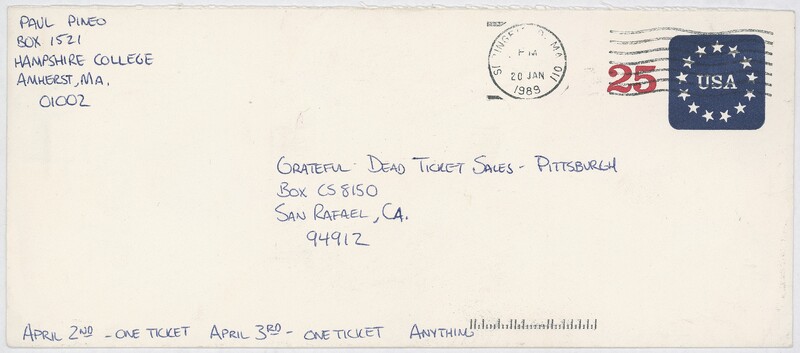 PAUL PINEO
BOX 1521
HAMPSHIRE COLLEGE
AMHERST, MA.
01002
PM
20 JAN
1989
25
USA
GRATEFUL DEAD TICKET SALES - PITTSBURGH
BOX CS 8150
SAN RAFAEL, CA.
94912
APRIL 2ND - ONE TICKET APRIL 3RD - ONE TICKET ANYTHING